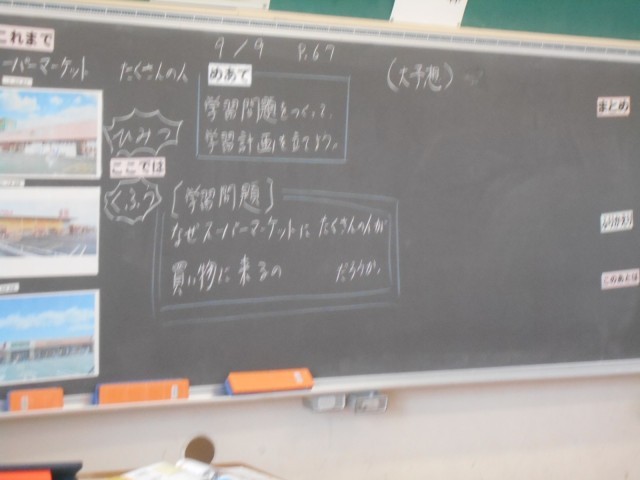 これまで
ーパーマーケット
たくさんの人
9/9 P.69
めあて
学習問題をつくって、
学習計画を立てよう。
(大予想)
まとめ
ひみつ
ここでは
くふう
[学習問題]
なぜスーパーマーケットに たくさんの人が
買い物に来るの だろうか。
ふりかえり
このあとは